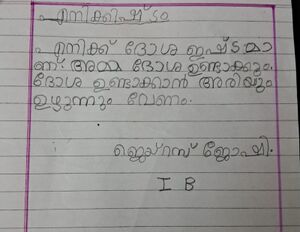 എനിക്കിഷ്ടം
എനിക്ക് ദോശ ഇഷ്ടമാ
ണ്. അമ്മ ദോശ ഉണ്ടാക്കും.
ദോശ ഉണ്ടാക്കാൻ അരിയും
ഉഴുന്നും വേണം.
ജെയ്റസ് ജോഷി.
I B